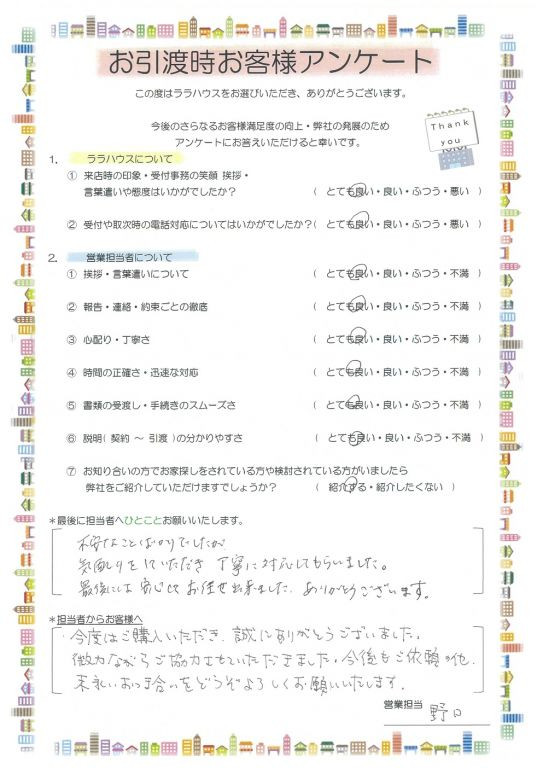 お引渡時お客様アンケート
この度はララハウスをお選びいただき、ありがとうございます。
今後のさらなるお客様満足度の向上・弊社の発展のため
アンケートにお答えいただけると幸いです。
Thank
you
1. ララハウスについて
① 来店時の印象・受付事務の笑顔 挨拶・
言葉遣いや態度はいかがでしたか? ( とても良い・良い・ふつう・悪い )
② 受付や取次時の電話対応についてはいかがでしたか? ( とても良い・良い・ふつう・悪い )
2. 営業担当者について
① 挨拶・言葉遣いについて ( とても良い・良い・ふつう・不満 )
② 報告・連絡・約束ごとの徹底 ( とても良い・良い・ふつう・不満 )
③ 心配り・丁寧さ ( とても良い・良い・ふつう・不満 )
④ 時間の正確さ・迅速な対応 ( とても良い・良い・ふつう・不満 )
⑤ 書類の受渡し・手続きのスムーズさ ( とても良い・良い・ふつう・不満 )
⑥ 説明(契約 ～ 引渡)の分かりやすさ ( とても良い・良い・ふつう・不満 )
⑦ お知り合いの方でお家探しをされている方や検討されている方がいましたら
弊社をご紹介していただけますでしょうか? ( 紹介する・紹介したくない )
*最後に担当者へひとことお願いいたします。
不安なことばかりでしたが
気配りをしていただき 丁寧に対応してもらいました。
最後には安心してお任せ出来ました。ありがとうございます。
*担当者からお客様へ
今度はご購入いただき、誠にありがとうございました。
微力ながらご協力させていただきました。今後もご依頼の他、
末永いおつき合いをどうぞよろしくお願いいたします。
営業担当 野口